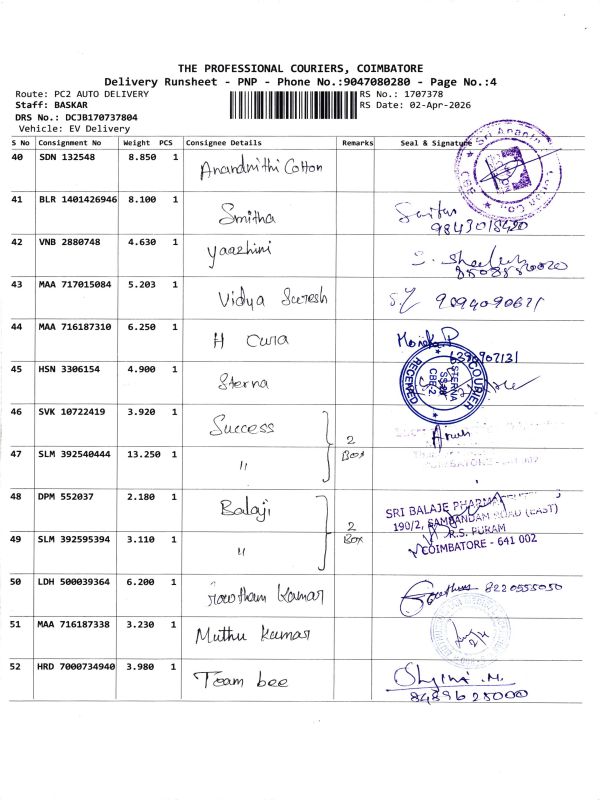 THE PROFESSIONAL COURIERS, COIMBATORE
Delivery Runsheet - PNP - Phone No.:9047080280 - Page No.:4
Route: PC2 AUTO DELIVERY
RS No.: 1707378
Staff: BASKAR
RS Date: 02-Apr-2026
DRS No.: DCJB170737804
Vehicle: EV Delivery
S No Consignment No Weight PCS Consignee Details Remarks Seal & Signature
40 SDN 132548 8.850 1 Anandnithi Cotton
41 BLR 1401426946 8.100 1 Smitha
9843018420
42 VNB 2880748 4.630 1 Yaazhini
43 MAA 717015084 5.203 1 Vidya Suresh
44 MAA 716187310 6.250 1 H Cura Monika.P
45 HSN 3306154 4.900 1 Sterna
COURIER
STERNA
CBE-2
RECEIVED
46 SVK 10722419 3.920 1 Success
2
Box
47 SLM 392540444 13.250 1 "
48 DPM 552037 2.180 1 Balaji
2
Box
SRI BALAJE
190/2, SAMBANDAM ROAD (EAST)
R.S. PURAM
COIMBATORE - 641 002
49 SLM 392595394 3.110 1 "
50 LDH 500039364 6.200 1 Gowtham Kumar
51 MAA 716187338 3.230 1 Muthu Kumar
52 HRD 7000734940 3.980 1 Team bee
8489625000